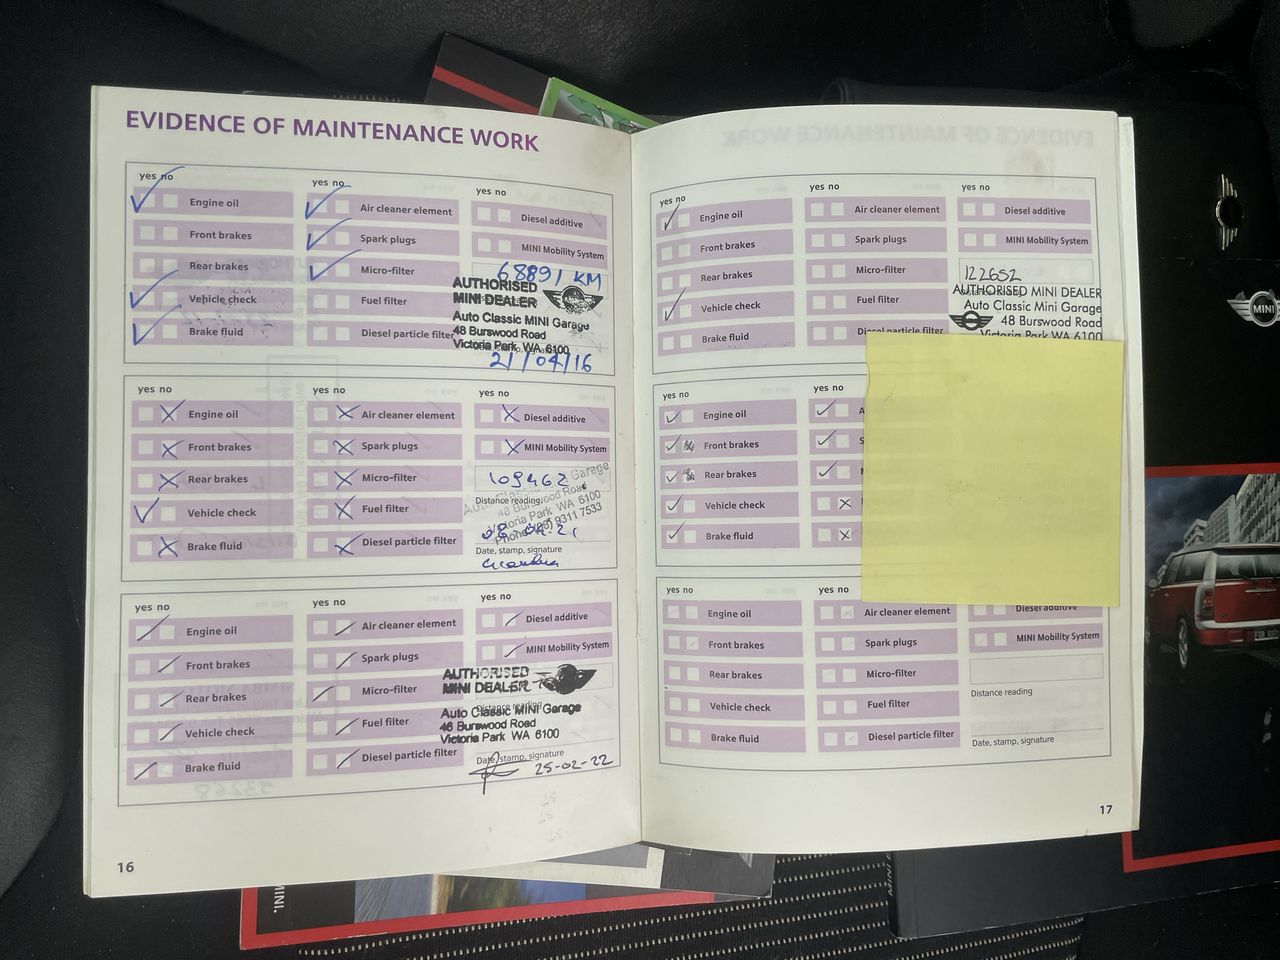 EVIDENCE OF MAINTENANCE WORK
yes no
yes no
yes no
Engine oil
Air cleaner element
Diesel additive
Front brakes
Spark plugs
MINI Mobility System
Rear brakes
Micro-filter
68891 KM
Vehicle check
Fuel filter
AUTHORISED
MINI DEALER
Auto Classic MINI Garage
48 Burswood Road
Victoria Park WA 6100
Brake fluid
Diesel particle filter
21/04/16
yes no
yes no
yes no
Engine oil
Air cleaner element
Diesel additive
Front brakes
Spark plugs
MINI Mobility System
Rear brakes
Micro-filter
109462
Distance reading
Vehicle check
Fuel filter
Garage
48 Burswood Road
Victoria Park WA 6100
Phone (08) 9311 7533
Brake fluid
Diesel particle filter
Date, stamp, signature
yes no
yes no
yes no
Engine oil
Air cleaner element
Diesel additive
Front brakes
Spark plugs
MINI Mobility System
Rear brakes
Micro-filter
AUTHORISED
MINI DEALER
Distance reading
Vehicle check
Fuel filter
Auto Classic MINI Garage
48 Burswood Road
Victoria Park WA 6100
Brake fluid
Diesel particle filter
Date, stamp, signature
25-02-22
16
yes no
yes no
yes no
Engine oil
Air cleaner element
Diesel additive
Front brakes
Spark plugs
MINI Mobility System
Rear brakes
Micro-filter
122652
AUTHORISED MINI DEALER
Auto Classic Mini Garage
48 Burswood Road
Victoria Park WA 6100
Vehicle check
Fuel filter
Brake fluid
Diesel particle filter
yes no
yes no
Engine oil
Front brakes
Rear brakes
Vehicle check
Brake fluid
yes no
yes no
Engine oil
Air cleaner element
Diesel additive
Front brakes
Spark plugs
MINI Mobility System
Rear brakes
Micro-filter
Distance reading
Vehicle check
Fuel filter
Brake fluid
Diesel particle filter
Date, stamp, signature
17
MINI
MINI.